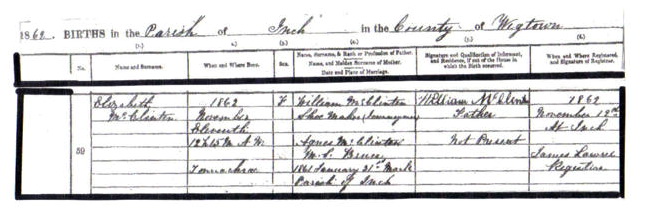 1862. BIRTHS in the Parish of Inch in the County of Wigtown
(1.) (2.) (3.) (4.) (5.) (6.)
No. Name and Surname. When and Where Born. Sex. Name, Surname, & Rank or Profession of Father. Name, and Maiden Surname of Mother. Date and Place of Marriage. Signature and Qualification of Informant, and Residence, if out of the House in which the Birth occurred. When and Where Registered, and Signature of Registrar.
Elizabeth 1862 F William McClinton William McClinton 1862
McClinton November Shoe Maker Journeyman Father November 19th
Eleventh At Inch
59 12h 45m A.M. Agnes McClinton Not Present
M.S. Bruce James Lawrie
1861 January 31st Registrar
Parish of Inch